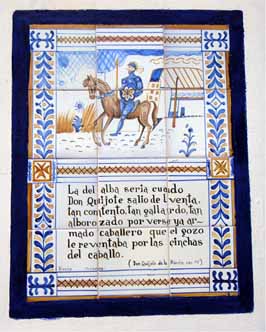 La del alba sería cuado
Don Quijote salio de Lventa,
tan contento, tan gallardo, tan
alborozado por verse ya ar-
mado caballero que el gozo
le reventaba por las cinchas
del caballo.
(Don Quijote de la Mancha